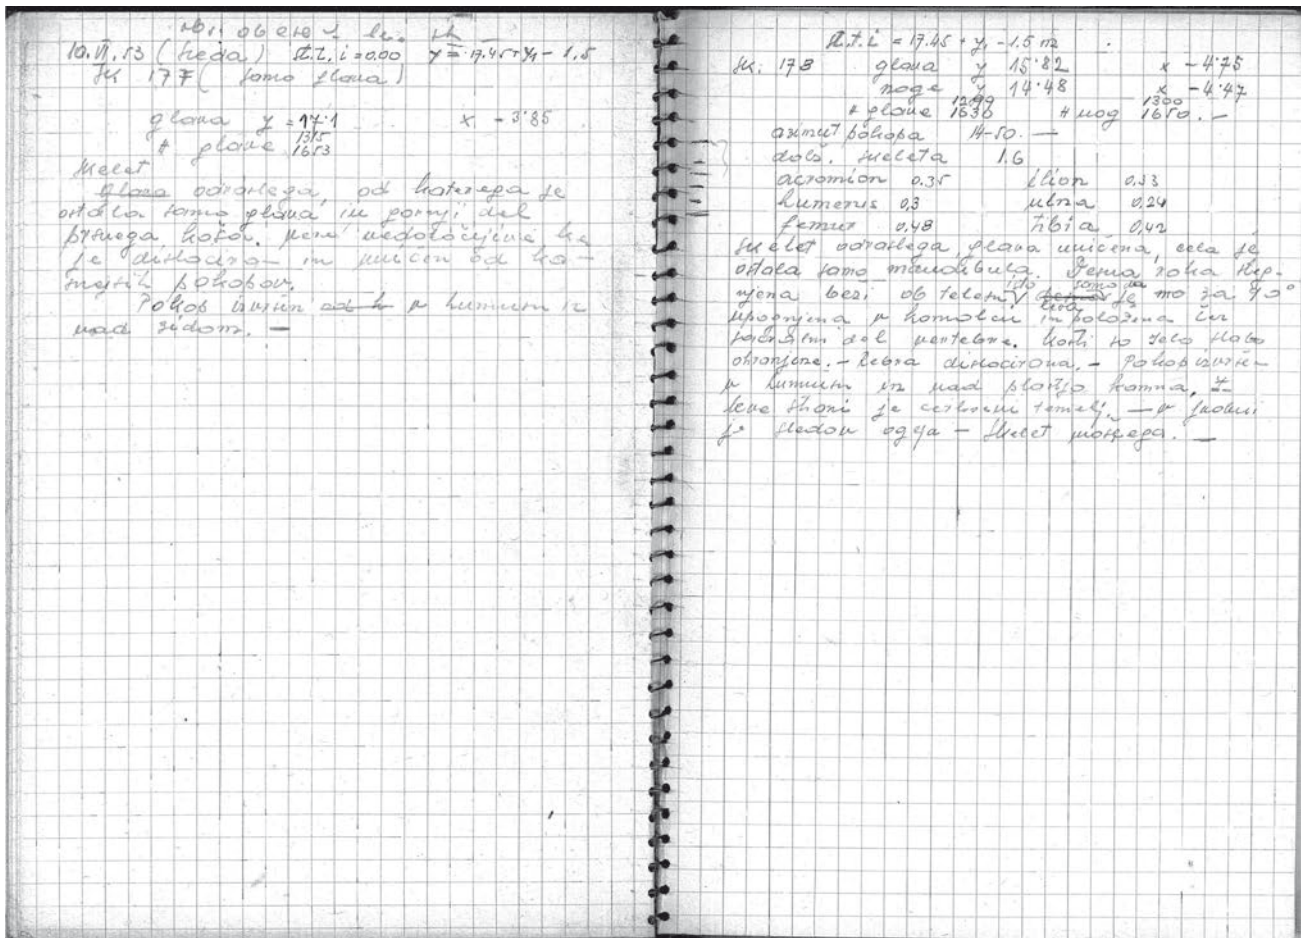 10.VI.53 (sreda) st.t. i = 0.00 y = 17.45 + y₁ - 1.5
SK 177 (samo glava)
glava y = 17.1 x - 3.85
# glave 1315
1653
Skelet
glava odraslega, od katerega je
ostala samo glava in gornji del
prsnega koša. nedoločljiva ke
je dislociran in uničen od ka-
snejših pokopov.
Pokop izvršen v humusu iz
nad zidom. —
st.t. i = 17.45 + y₁ - 1.5 m
sk. 178 glava y 15.82 x -4.75
noge y 14.48 x -4.47
# glave 1299 # nog 1300
1630 1650. —
azimut pokopa 14-50. —
dolž. skeleta 1.6
acromion 0.35 ilion 0.33
humerus 0,3 ulna 0,24
femur 0,48 tibia 0,42
skelet odraslega glava uničena, cela je
ostala samo mandibula. Desna roka steg-
njena beži ob telesu, isto samo da
leva je za 90°
upognjena v komolcu in položena čez
sakralni del vertebre. Kosti so zelo slabo
ohranjene. - Rebra dislocirana. - Pokop izvršen
v humusu in nad plastjo kamna, z
leve strani je cerkveni temelj. — v
je sledov ognja - Skelet moškega. —